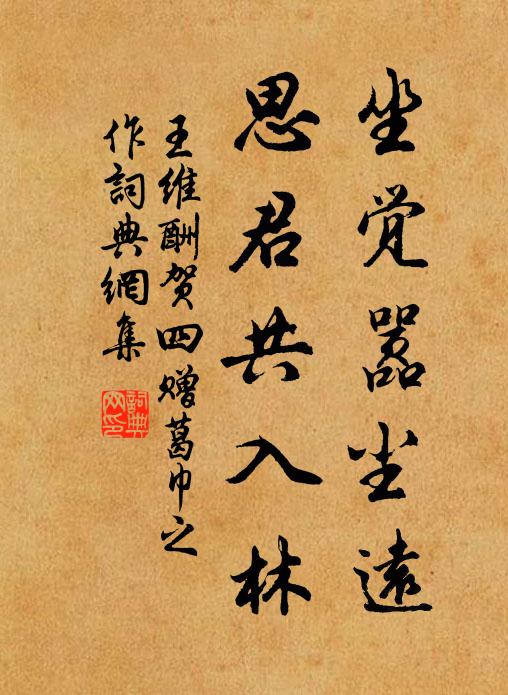 坐觉嚣尘遠
思君共入林
王维酬贺四赠葛巾之
作詞典網集
詞典
网印